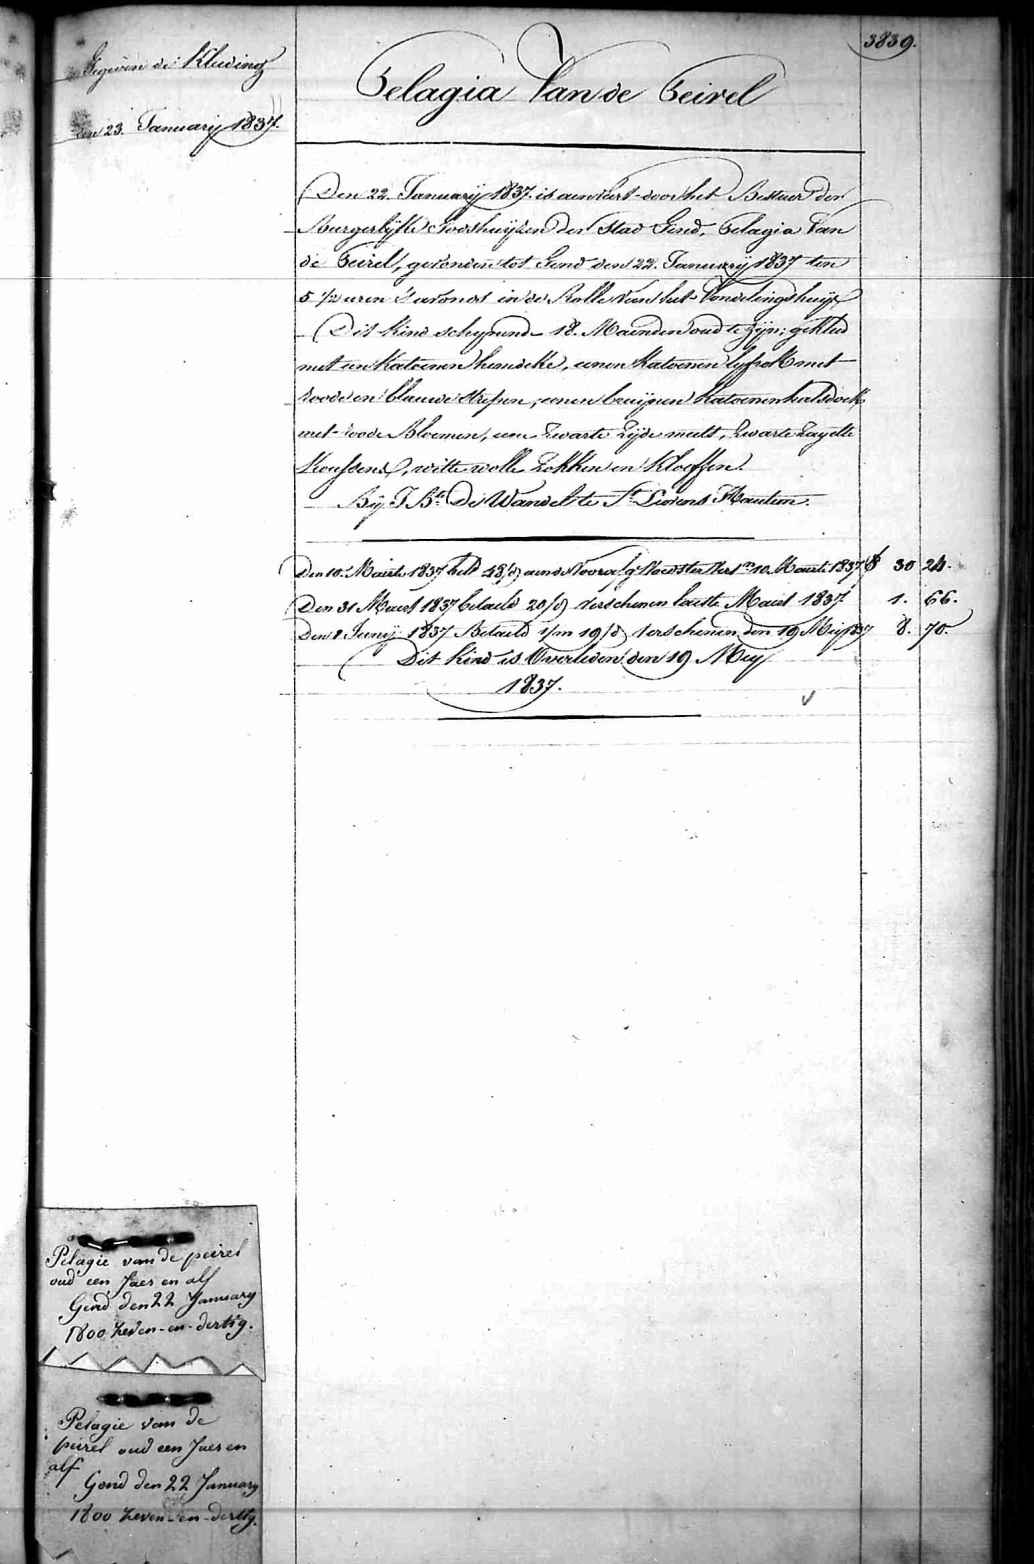 3839.
Gegeven de Kleeding
den 23. January 1837.
Pelagia Van de Peirel
Den 22. January 1837. is aenveert door het Bestuer der
Burgerlyke Godshuyzen der Stad Gend, Pelagia Van
de Peirel, gevonden tot Gend den 22. January 1837 ten
5 1/2 uren 's avonds in de Rolle van het Vondelingshuys
Dit kind schynende 18. Maenden oud te zyn; gekleed
met een Katoenen hemdeke, eenen Katoenen lyfrok met
roode en blauwe strepen, eenen bruynen Katoenen halsdoek
met roode Bloemen, eene Zwarte Zyde muts, Zwarte Zayette
Koussens, witte wolle Zokken en Kloeffen.
By J. Bte De Wandel te St Lievens Hautem.
Den 10. Maert 1837 48/d aen de Voorz. Voedster 10 Maerte 1837 30 24.
Den 31 Maert 1837 betaeld 20/d Verschenen laetste Maert 1837. 1. 66.
Den 1 Juny 1837 Betaeld 1/m 19/d Verschenen den 19 Mey 1837 8. 70.
Dit kind is Overleden den 19 Mey
1837.
Pelagie van de peirel
oud een Jaer en alf
Gend den 22 January
1800 zeven-en-dertig.
Pelagie van de
peirel oud een Jaer en
alf
Gend den 22 January
1800 zeven-en-dertig.